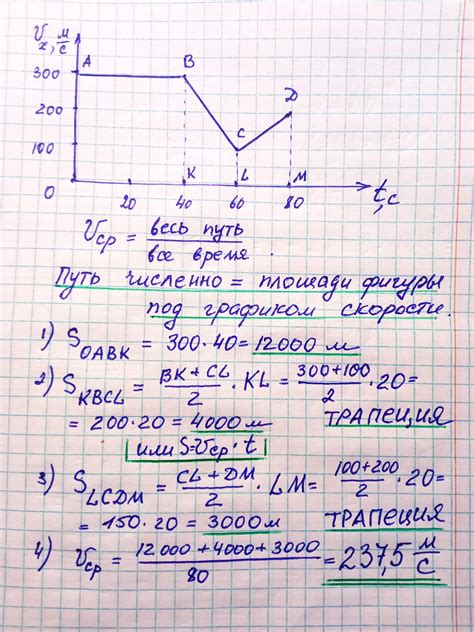 V
x, м/с
300
200
100
0
A
B
C
D
K
L
M
20 40 60 80
t, с
Vср = весь путь / все время .
Путь численно = площади фигуры
под графиком скорости.
1) S OABK = 300·40 = 12000 м
2) S KBCL = BK + CL / 2 · KL = 300+100 / 2 · 20 =
= 200·20 = 4000 м ТРАПЕЦИЯ
или S=Vср·t
3) S LCDM = CL + DM / 2 · LM = 100+200 / 2 · 20 =
= 150·20 = 3000 м ТРАПЕЦИЯ
4) Vср = 12000+4000+3000 / 80 = 237,5 м/с